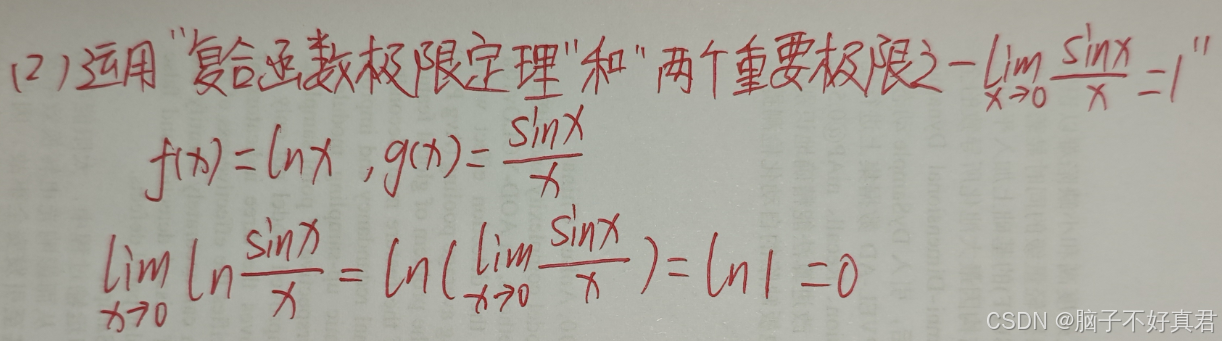 (2)运用"复合函数极限定理"和"两个重要极限之一lim x→0 sinx/x =1"
f(x)=lnx ,g(x)= sinx/x
lim x→0 ln sinx/x = ln(lim x→0 sinx/x)=ln1=0
CSDN @脑子不好真君